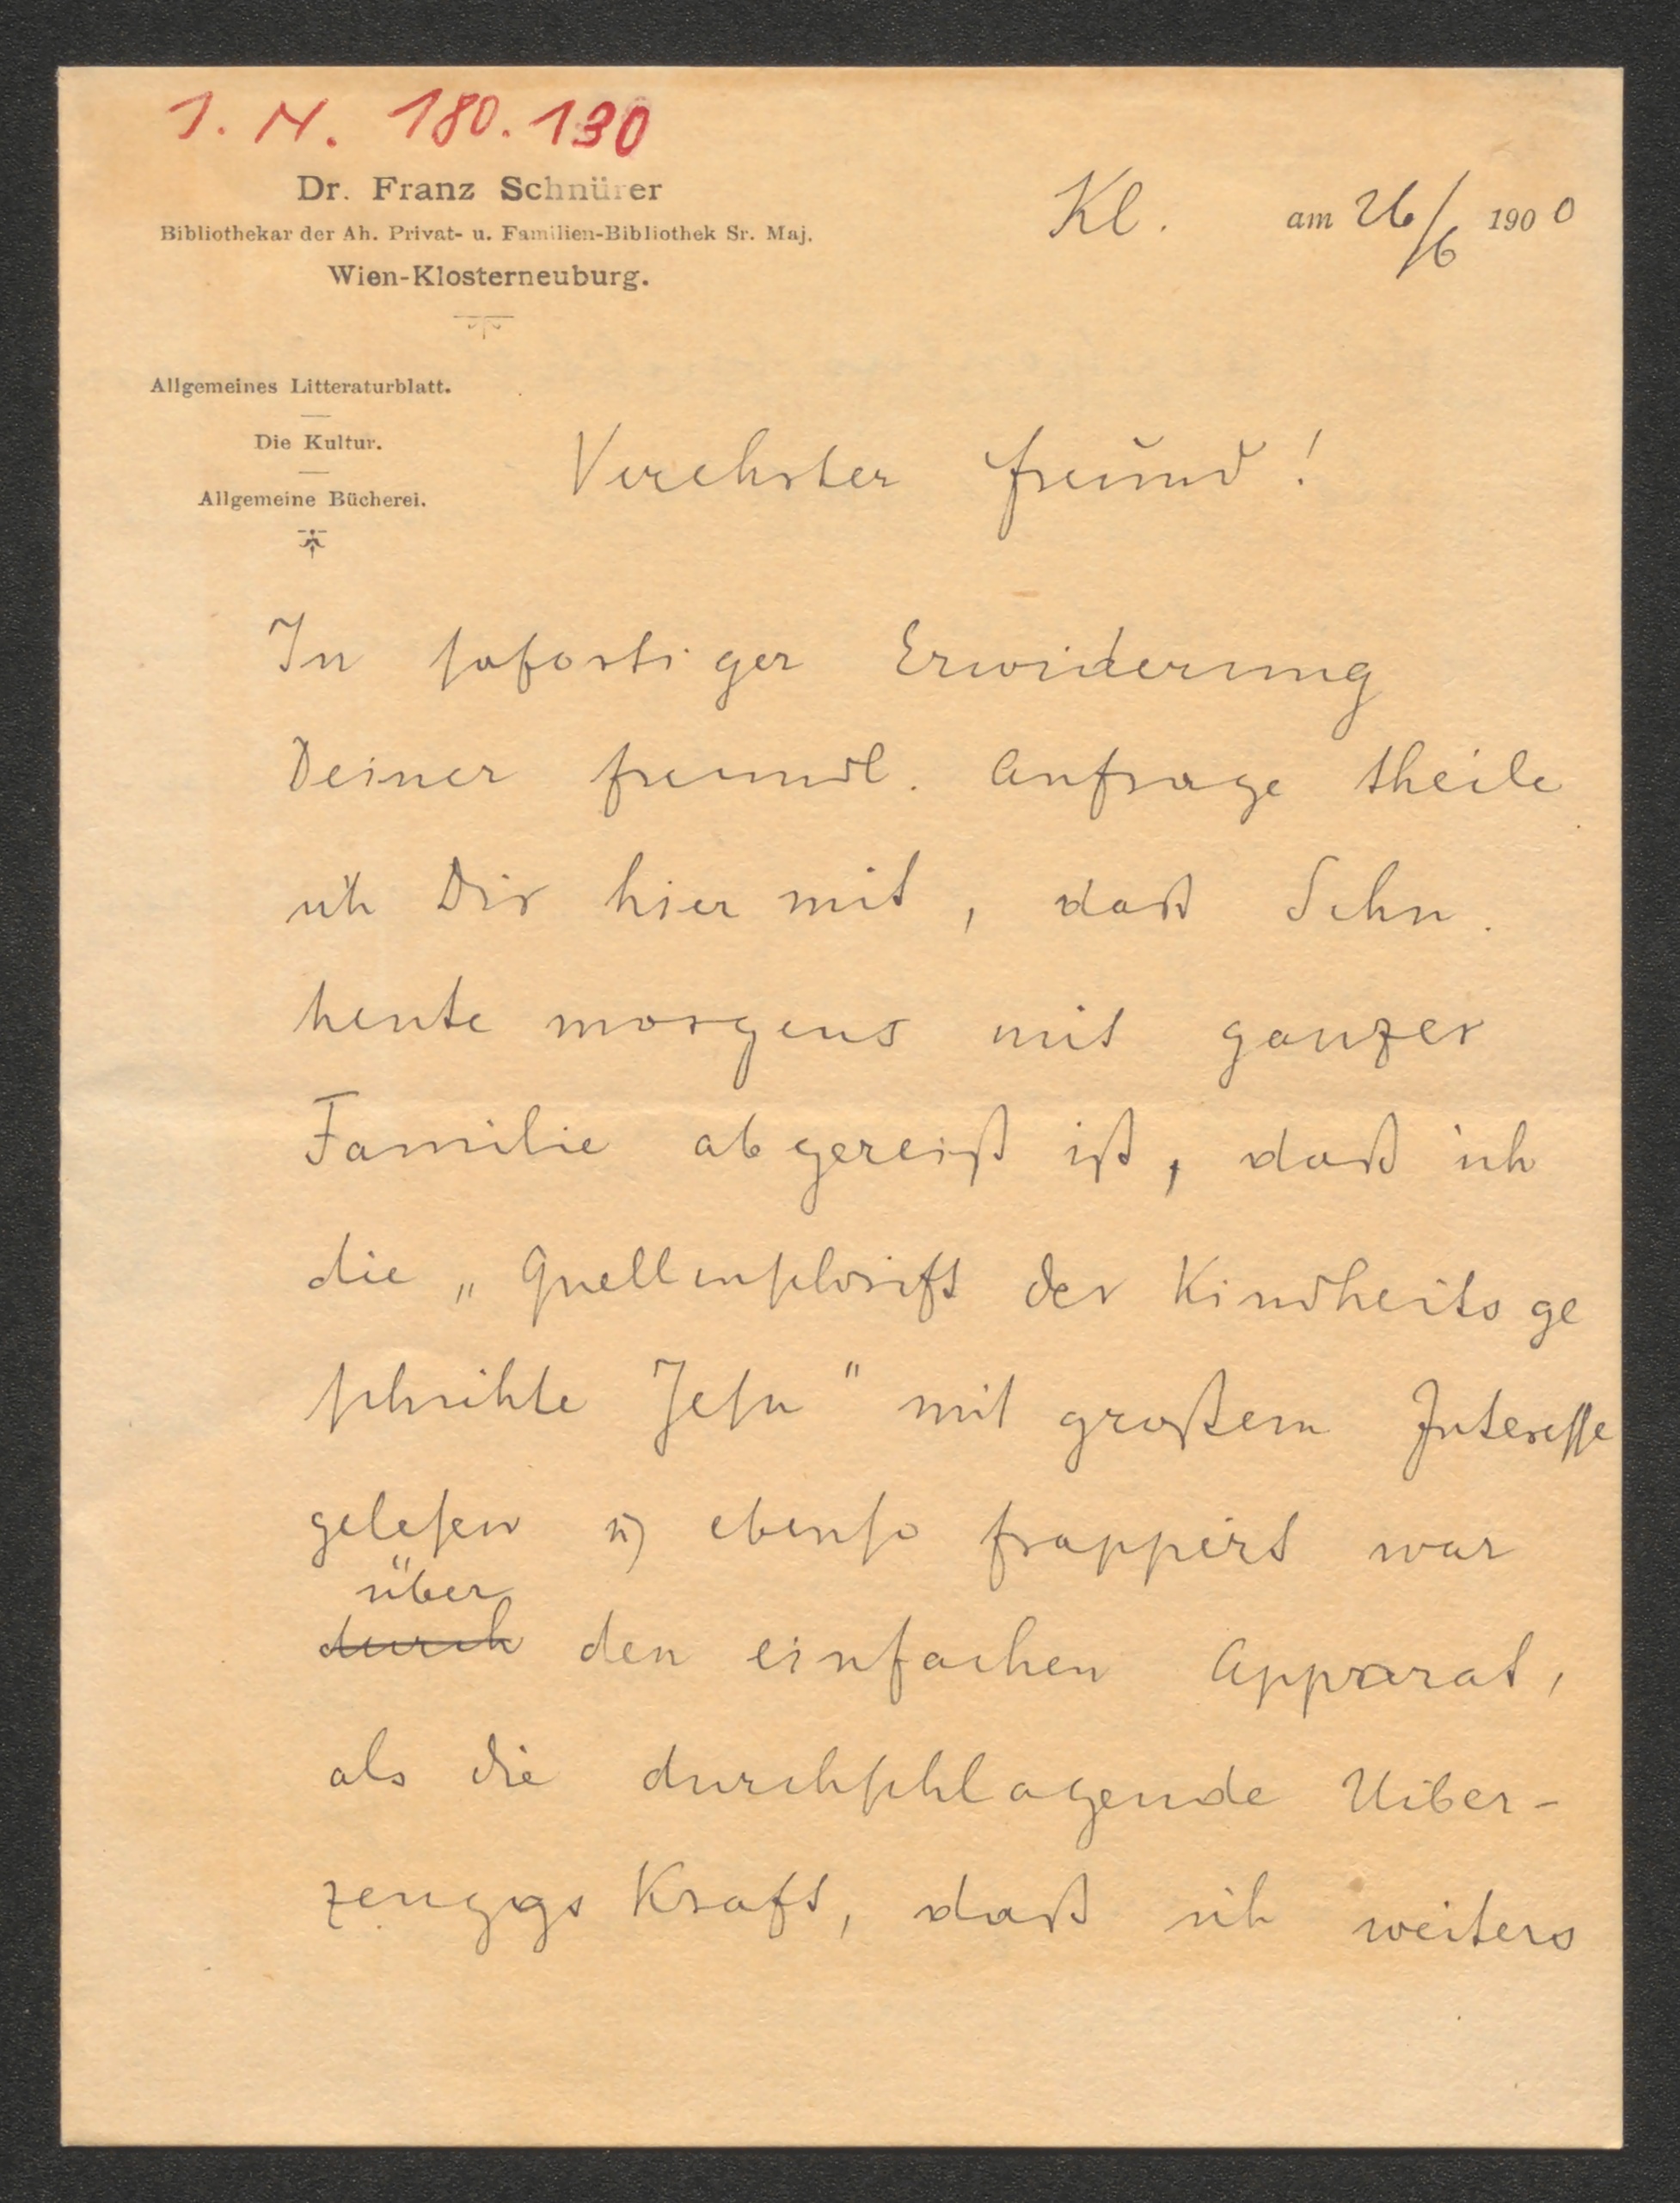 I. N. 180.130
Dr. Franz Schnürer
Bibliothekar der Ah. Privat- u. Familien-Bibliothek Sr. Maj.
Wien-Klosterneuburg.
Kl. am 26/6 1900
Allgemeines Litteraturblatt.
Die Kultur.
Allgemeine Bücherei.
Verehrter Freund!
In sofortiger Erwiderung
Deiner freundl. Anfrage theile
ich Dir hier mit, daß Schn.
heute morgens mit ganzer
Familie abgereist ist, daß ich
die „Quellenschrift der Kindheitsge
schichte Jesu" mit großem Interesse
gelesen u) ebenso frappirt war
über
durch den einfachen Apparat,
als die durchschlagende Uiber-
zeuggs Kraft, daß ich weiters